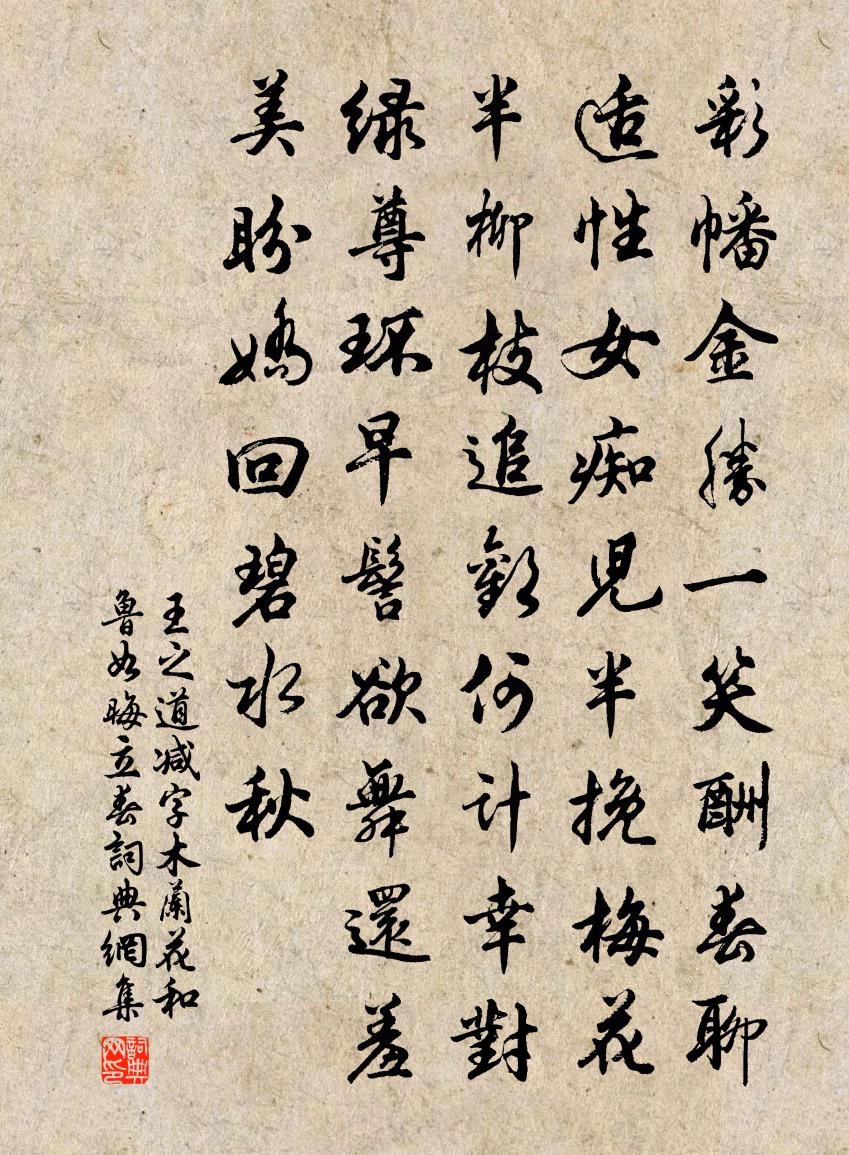 彩幡金勝一笑酬春聊
适性女痴児半挽梅花
半柳枝追歡何計幸對
绿尊环早髻欲舞還羞
美盼嬌回碧水秋
王之道减字木蘭花和
魯如晦立春詞典網集
詞典
网印